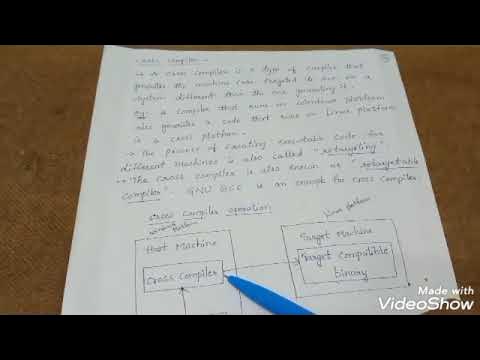 Cross Compiler -
→ A cross compiler is a type of compiler that
provides the machine code targeted to run on a
system different than the one generating it.
Eg: A compiler that runs on windows platform
also generates a code that runs on Linux platform
is a cross platform.
→ The process of creating executable code for
different machines is also called "retargeting"
→ The cross compiler is also known as "retargetable
compiler". GNU GCC is an example for cross compiler
Cross compiler operation
windows platform
Linux platform
Host Machine
Target Machine
Cross Compiler
Target Compatible
binary
Made with
VideoShow